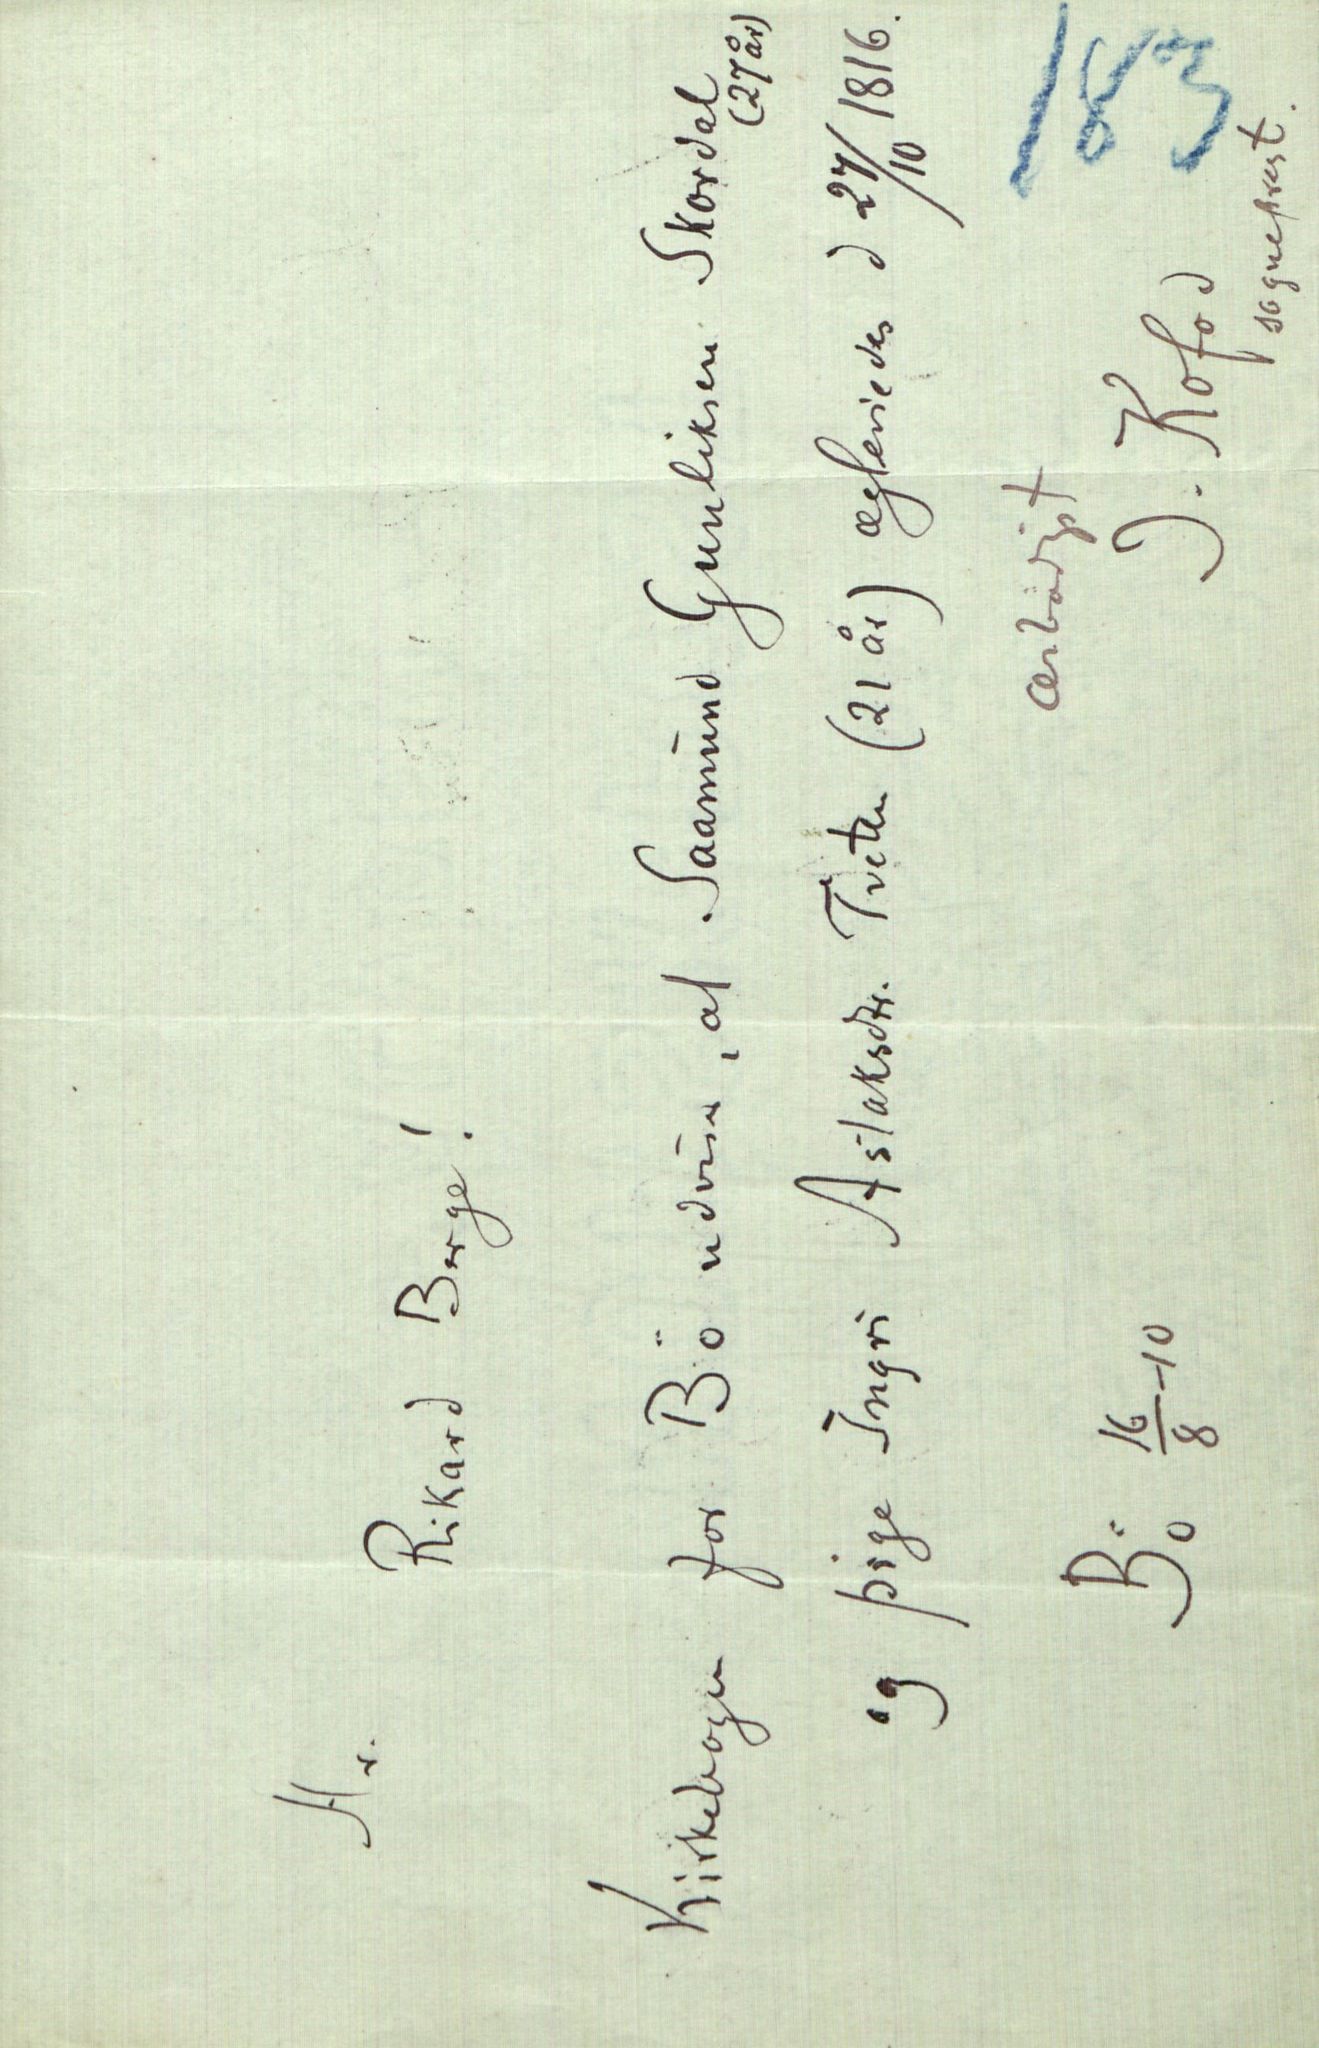 Hr.
Rikard Berge!
Kirkebogen for Bö udvise, at Saamund Gunliksen Skordal
(27 år)
og pige Ingri Aslaksdtr. Tveten (21 år) ægteviedes d 27/10 1816.
ærbødigst
Bö 16/8-10
J. Kofod
sogneprest.
183